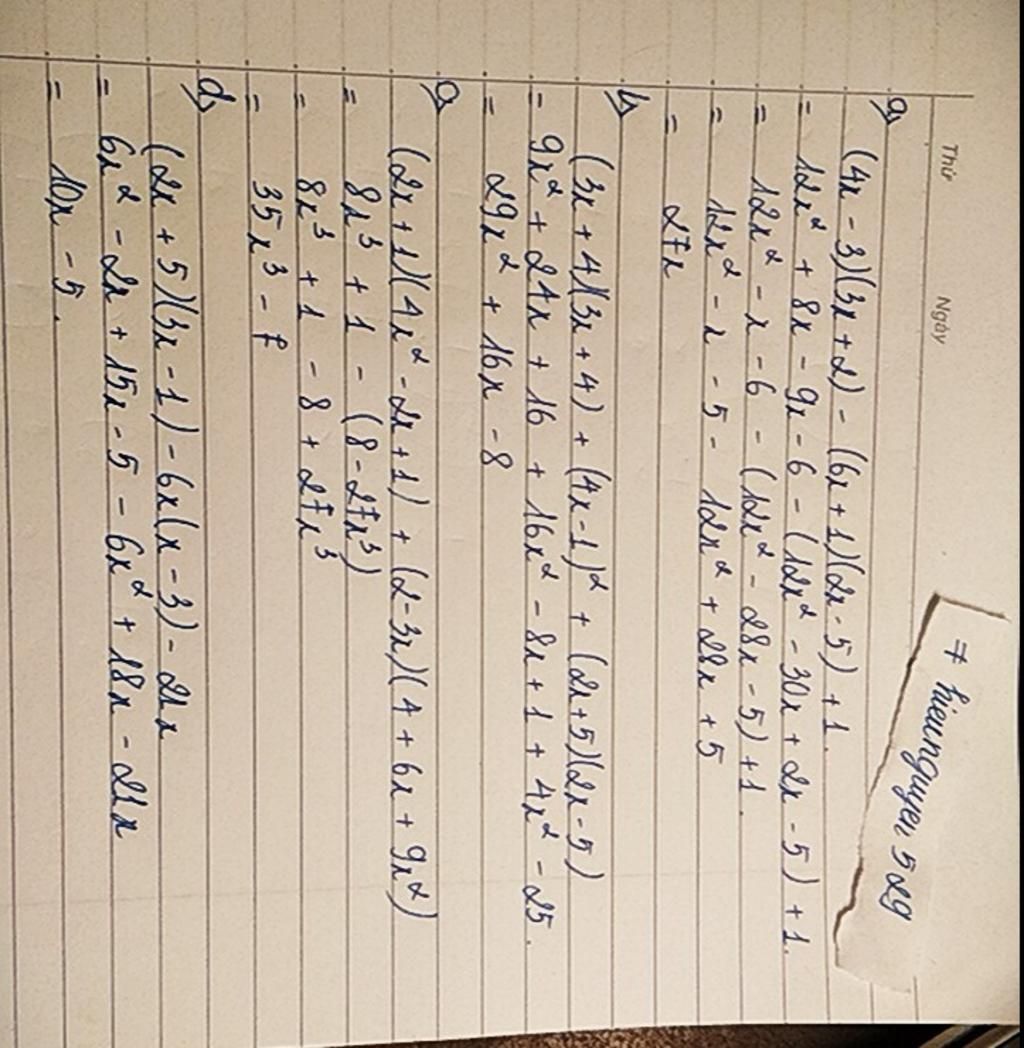 Thứ
Ngày
# hieunguyen 529
a) (4x - 3)(3x + 2) - (6x + 1)(2x - 5) + 1.
= 12x² + 8x - 9x - 6 - (12x² - 30x + 2x - 5) + 1.
= 12x² - x - 6 - (12x² - 28x - 5) + 1.
= 12x² - x - 5 - 12x² + 28x + 5
= 27x
b) (3x + 4)(3x + 4) + (4x - 1)² + (2x + 5)(2x - 5)
= 9x² + 24x + 16 + 16x² - 8x + 1 + 4x² - 25.
= 29x² + 16x - 8
c) (2x + 1)(4x² - 2x + 1) + (2 - 3x)(4 + 6x + 9x²)
= 8x³ + 1 - (8 - 27x³)
= 8x³ + 1 - 8 + 27x³
= 35x³ - 7
d) (2x + 5)(3x - 1) - 6x(x - 3) - 21x
= 6x² - 2x + 15x - 5 - 6x² + 18x - 21x
= 10x - 5.